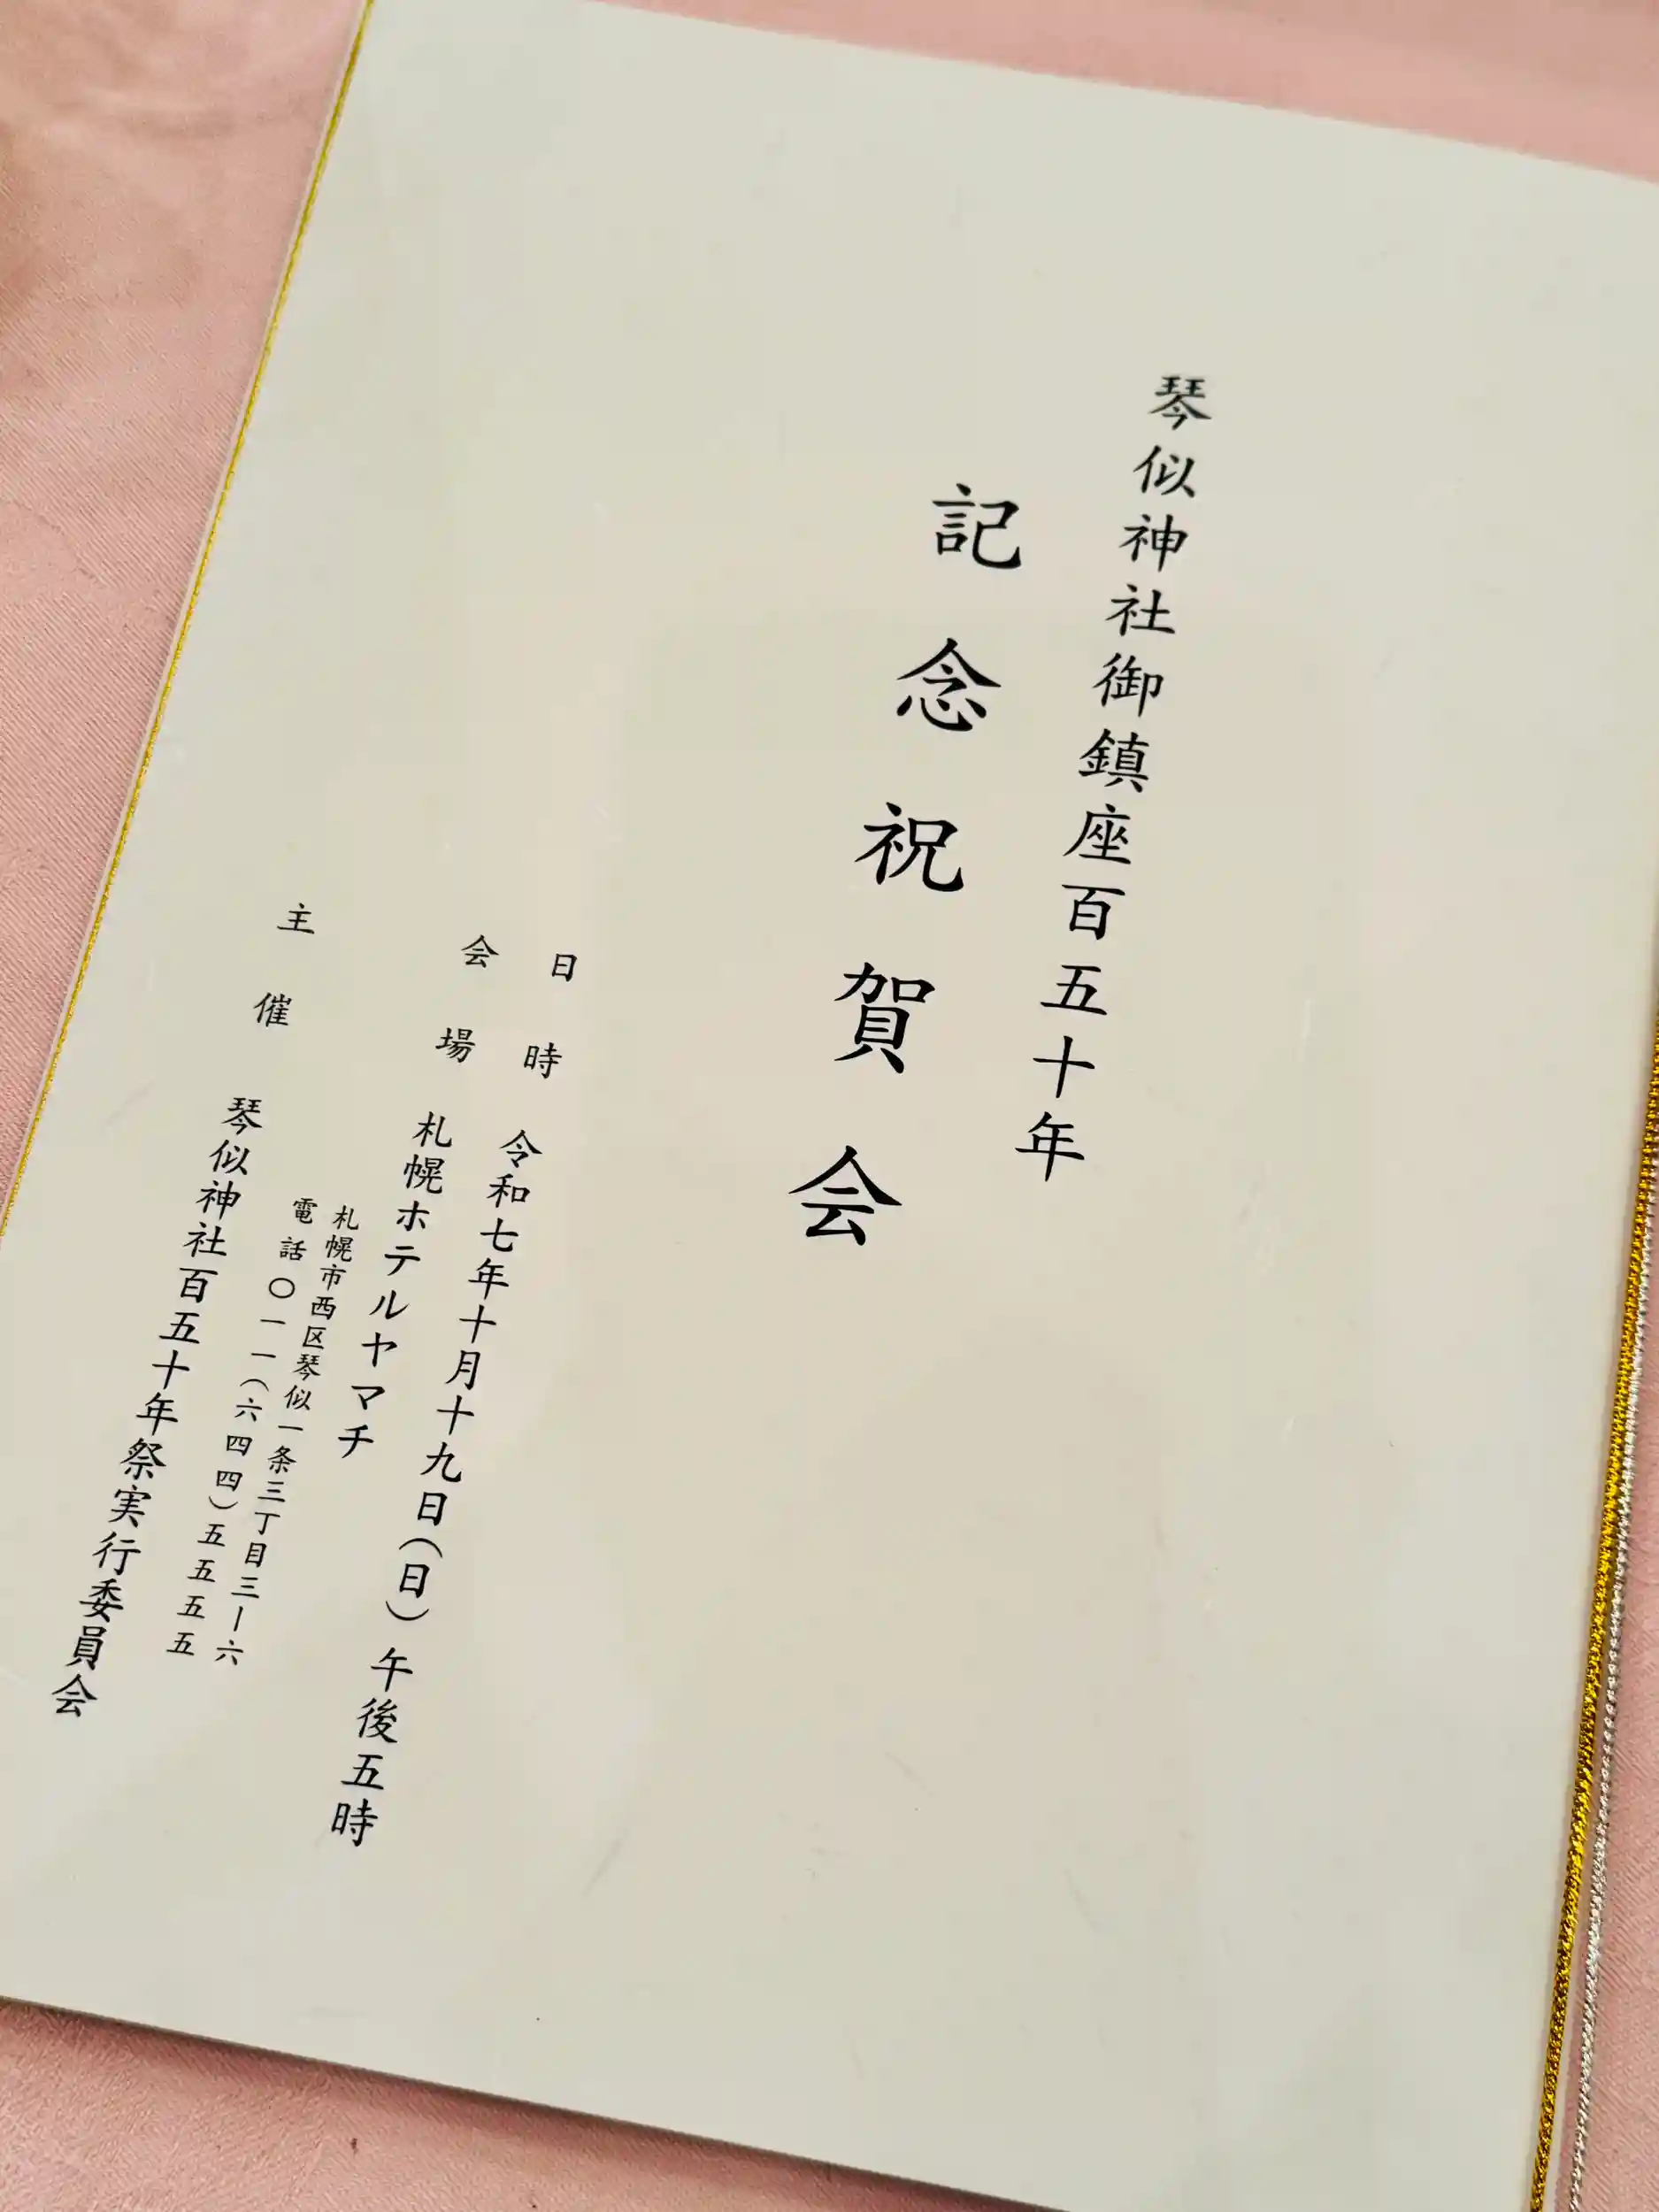 琴似神社御鎮座百五十年
記念祝賀会
日時 令和七年十月十九日(日) 午後五時
会場 札幌ホテルヤマチ
札幌市西区琴似一条三丁目三ー六
電話〇一一(六四四)五五五五
主催 琴似神社百五十年祭実行委員会